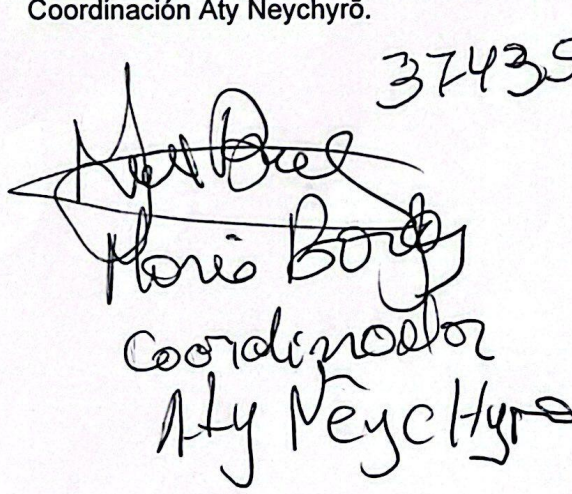 Coordinación Aty Neychyrõ.
37435
Mario Borja
Coordinador
Aty Neychyro